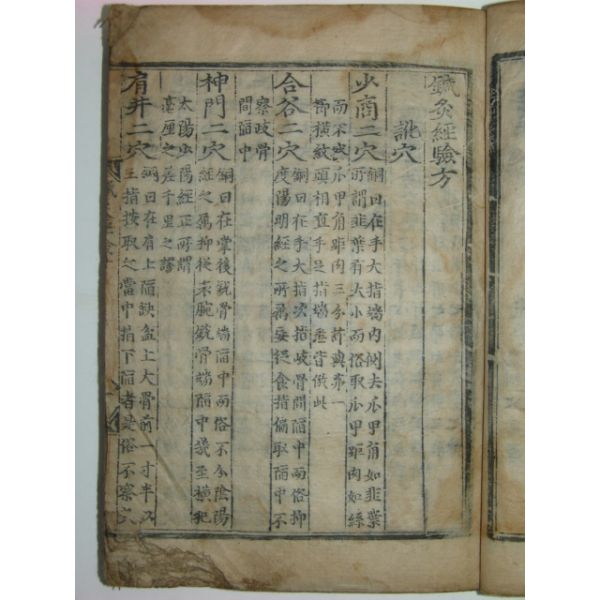 鍼灸經驗方
訛穴
少商二穴 銅曰在手大指端內側去爪甲角如韭葉
所謂韭葉有大小而俗取爪甲距肉如絲
而不爪甲角距肉三分許與第一
節橫紋頭相直手足指端悉皆倣此
合谷二穴 銅曰在手大指次指岐骨間陷中而俗抑
度陽明經之所屬妄從食指偏取陷中不
察岐骨
間陷中
神門二穴 銅曰在掌後銳骨端陷中而俗不分陰陽
經之屬抑從末腕銳骨端陷中幾至橫犯
太陽少陽經正所謂
毫厘之差千里之謬
肩井二穴 銅曰在肩上陷缺盆上大骨前一寸半以
三指按取之當中指下陷者是俗不察穴